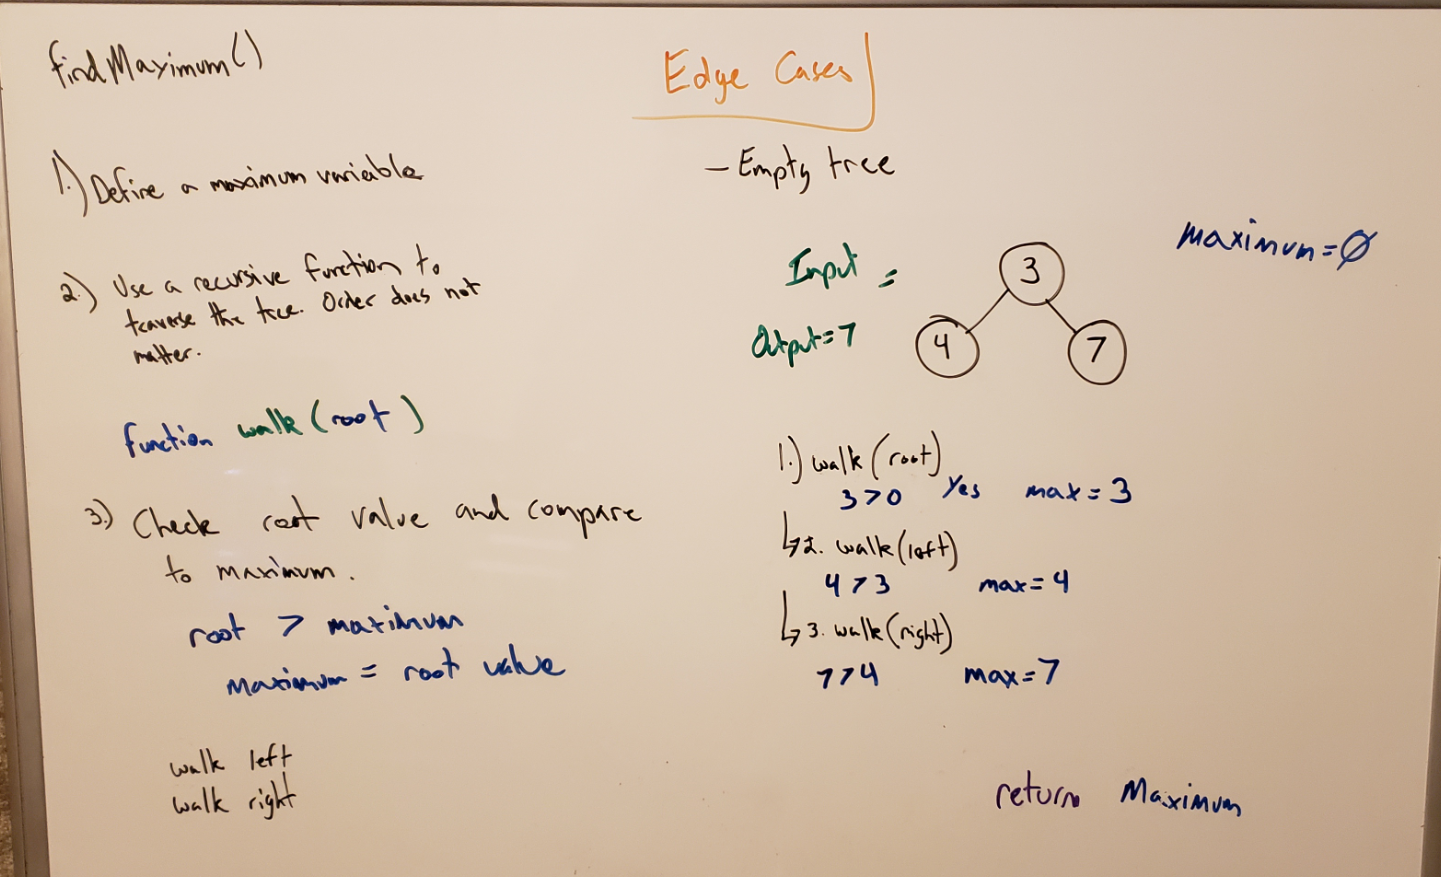 findMaximum()
1.) Define a maximum variable
2.) Use a recursive function to
traverse the tree. Order does not
matter.
function walk (root)
3.) Check root value and compare
to maximum.
root > maximum
maximum = root value
walk left
walk right
Edge Cases
- Empty tree
Input =
Output = 7
3
4
7
maximum = 0
1.) walk (root)
3 > 0 Yes max = 3
2. walk (left)
4 > 3 max = 4
3. walk (right)
7 > 4 max = 7
return Maximum